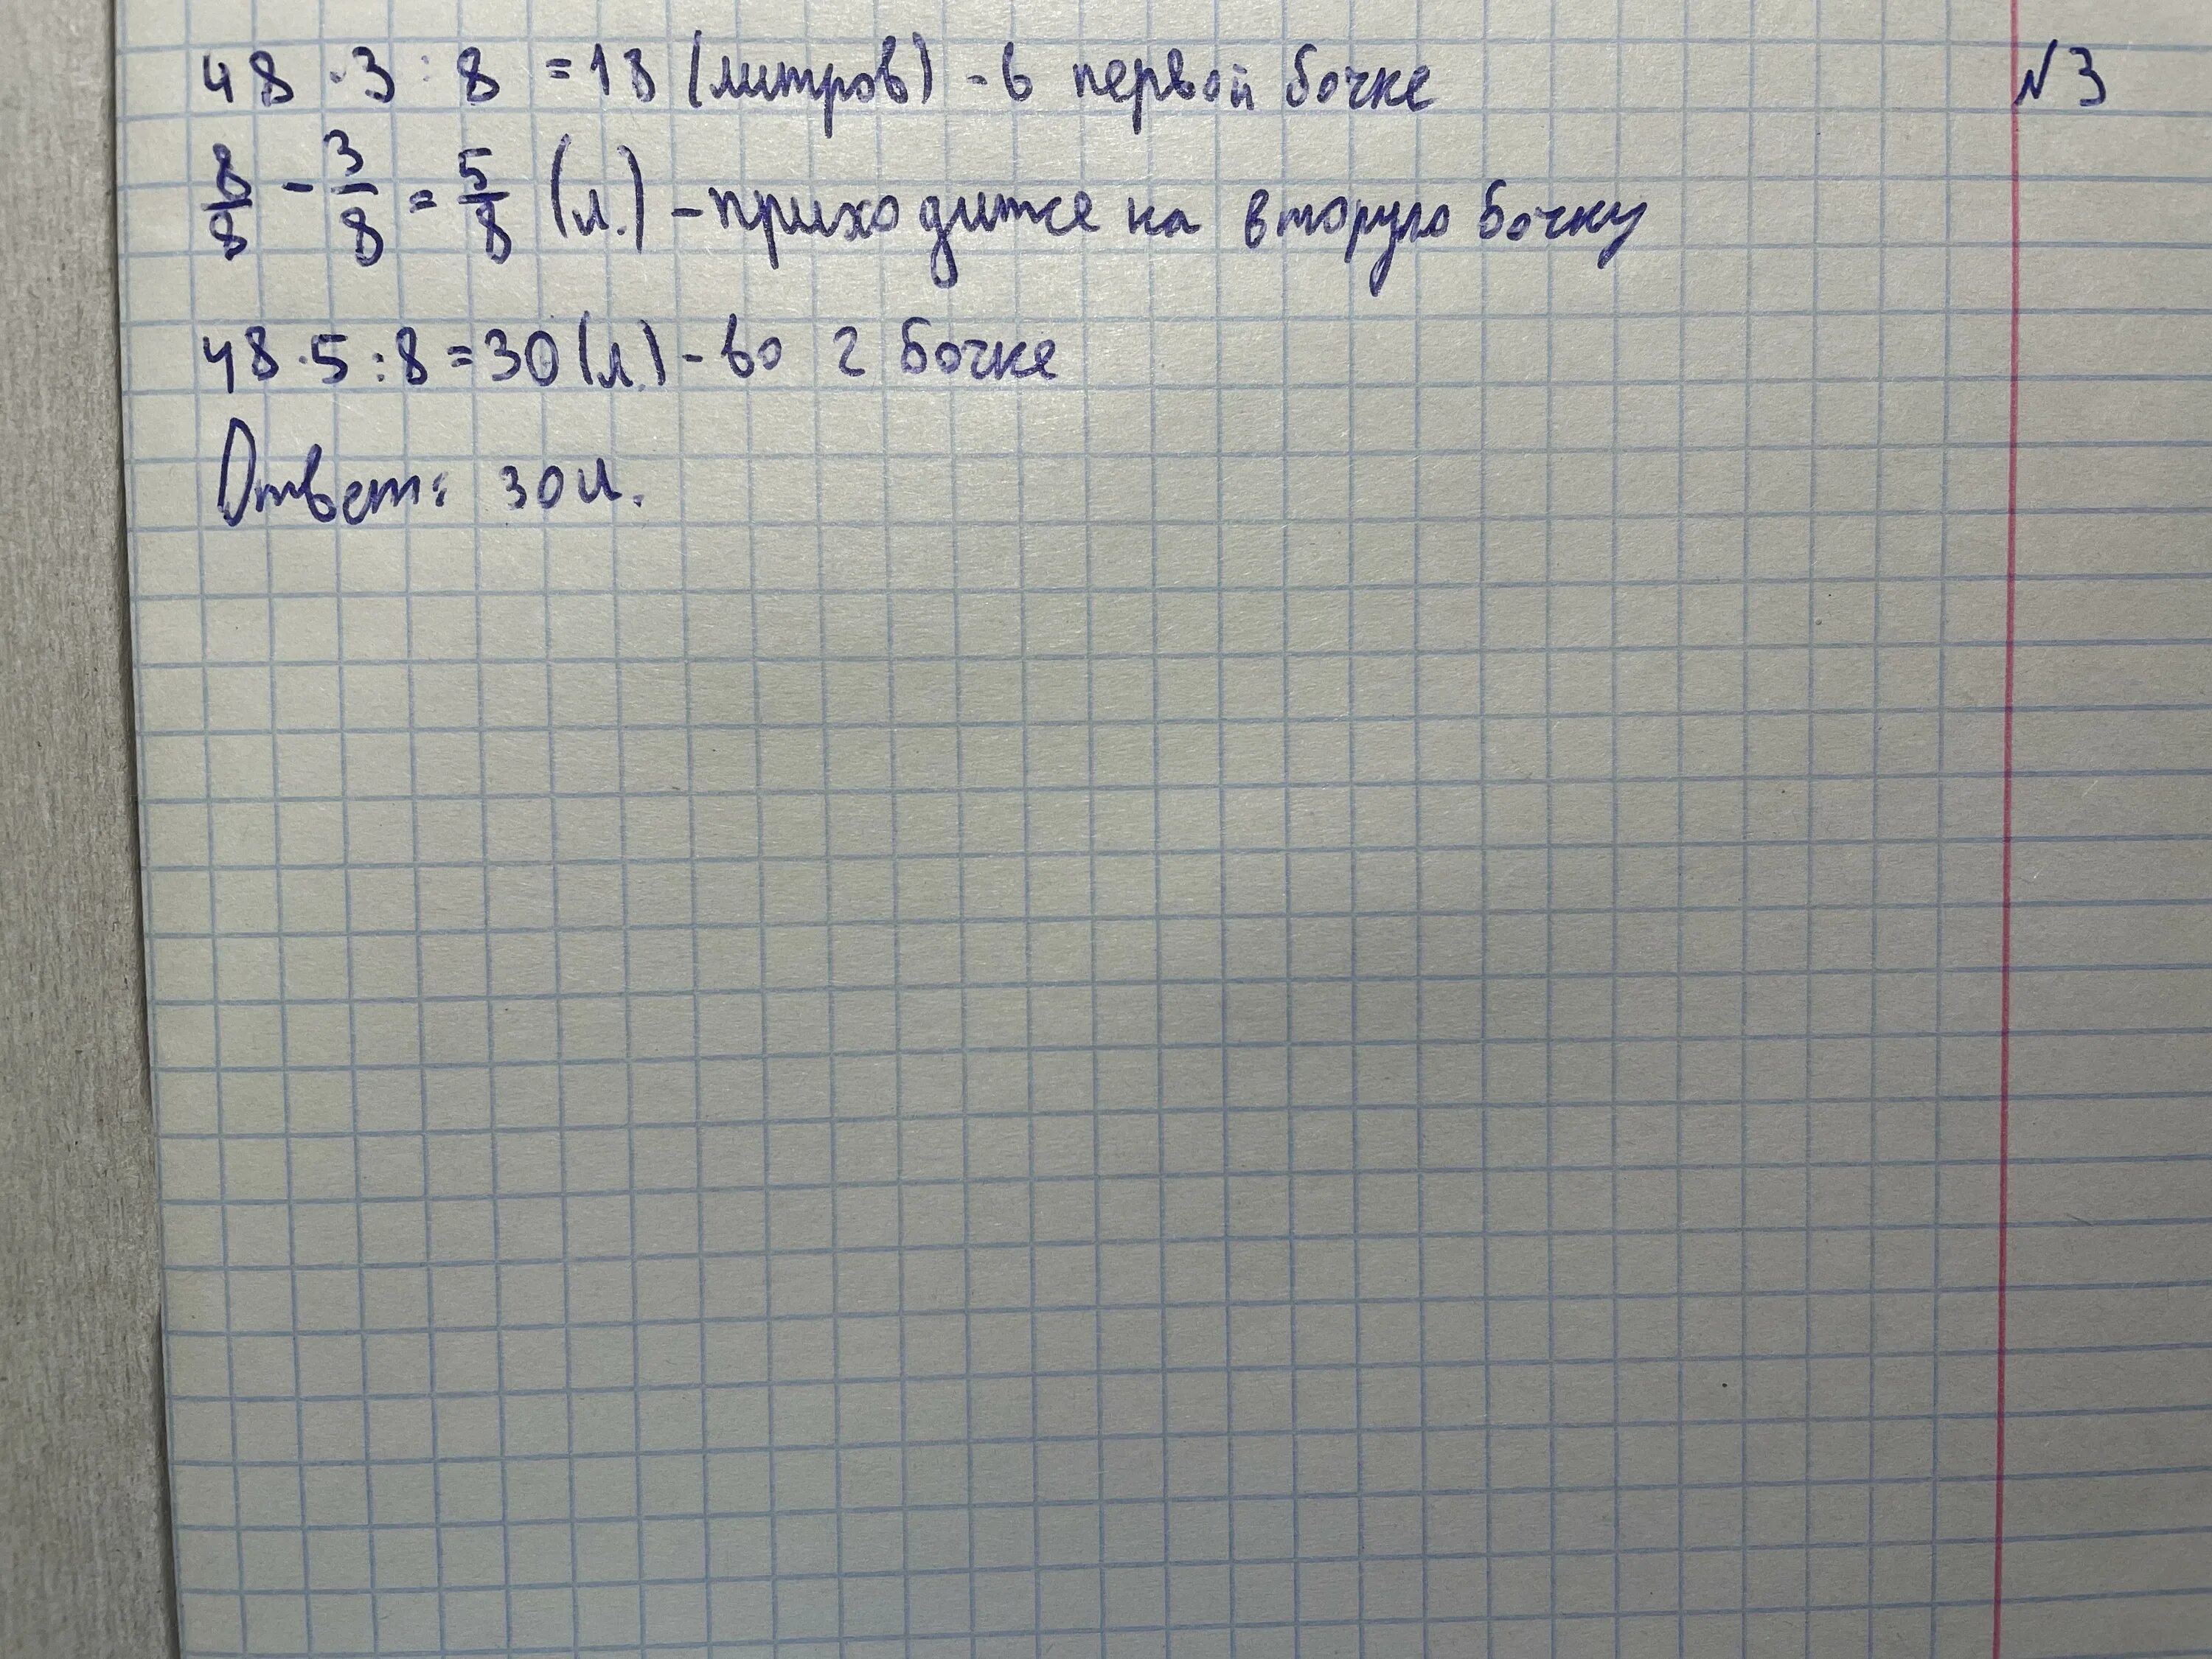 48 · 3 : 8 = 18 (литров) - в первой бочке
№3
8/8 - 3/8 = 5/8 (л.) - приходится на вторую бочку
48 · 5 : 8 = 30 (л.) - во 2 бочке
Ответ: 30 л.